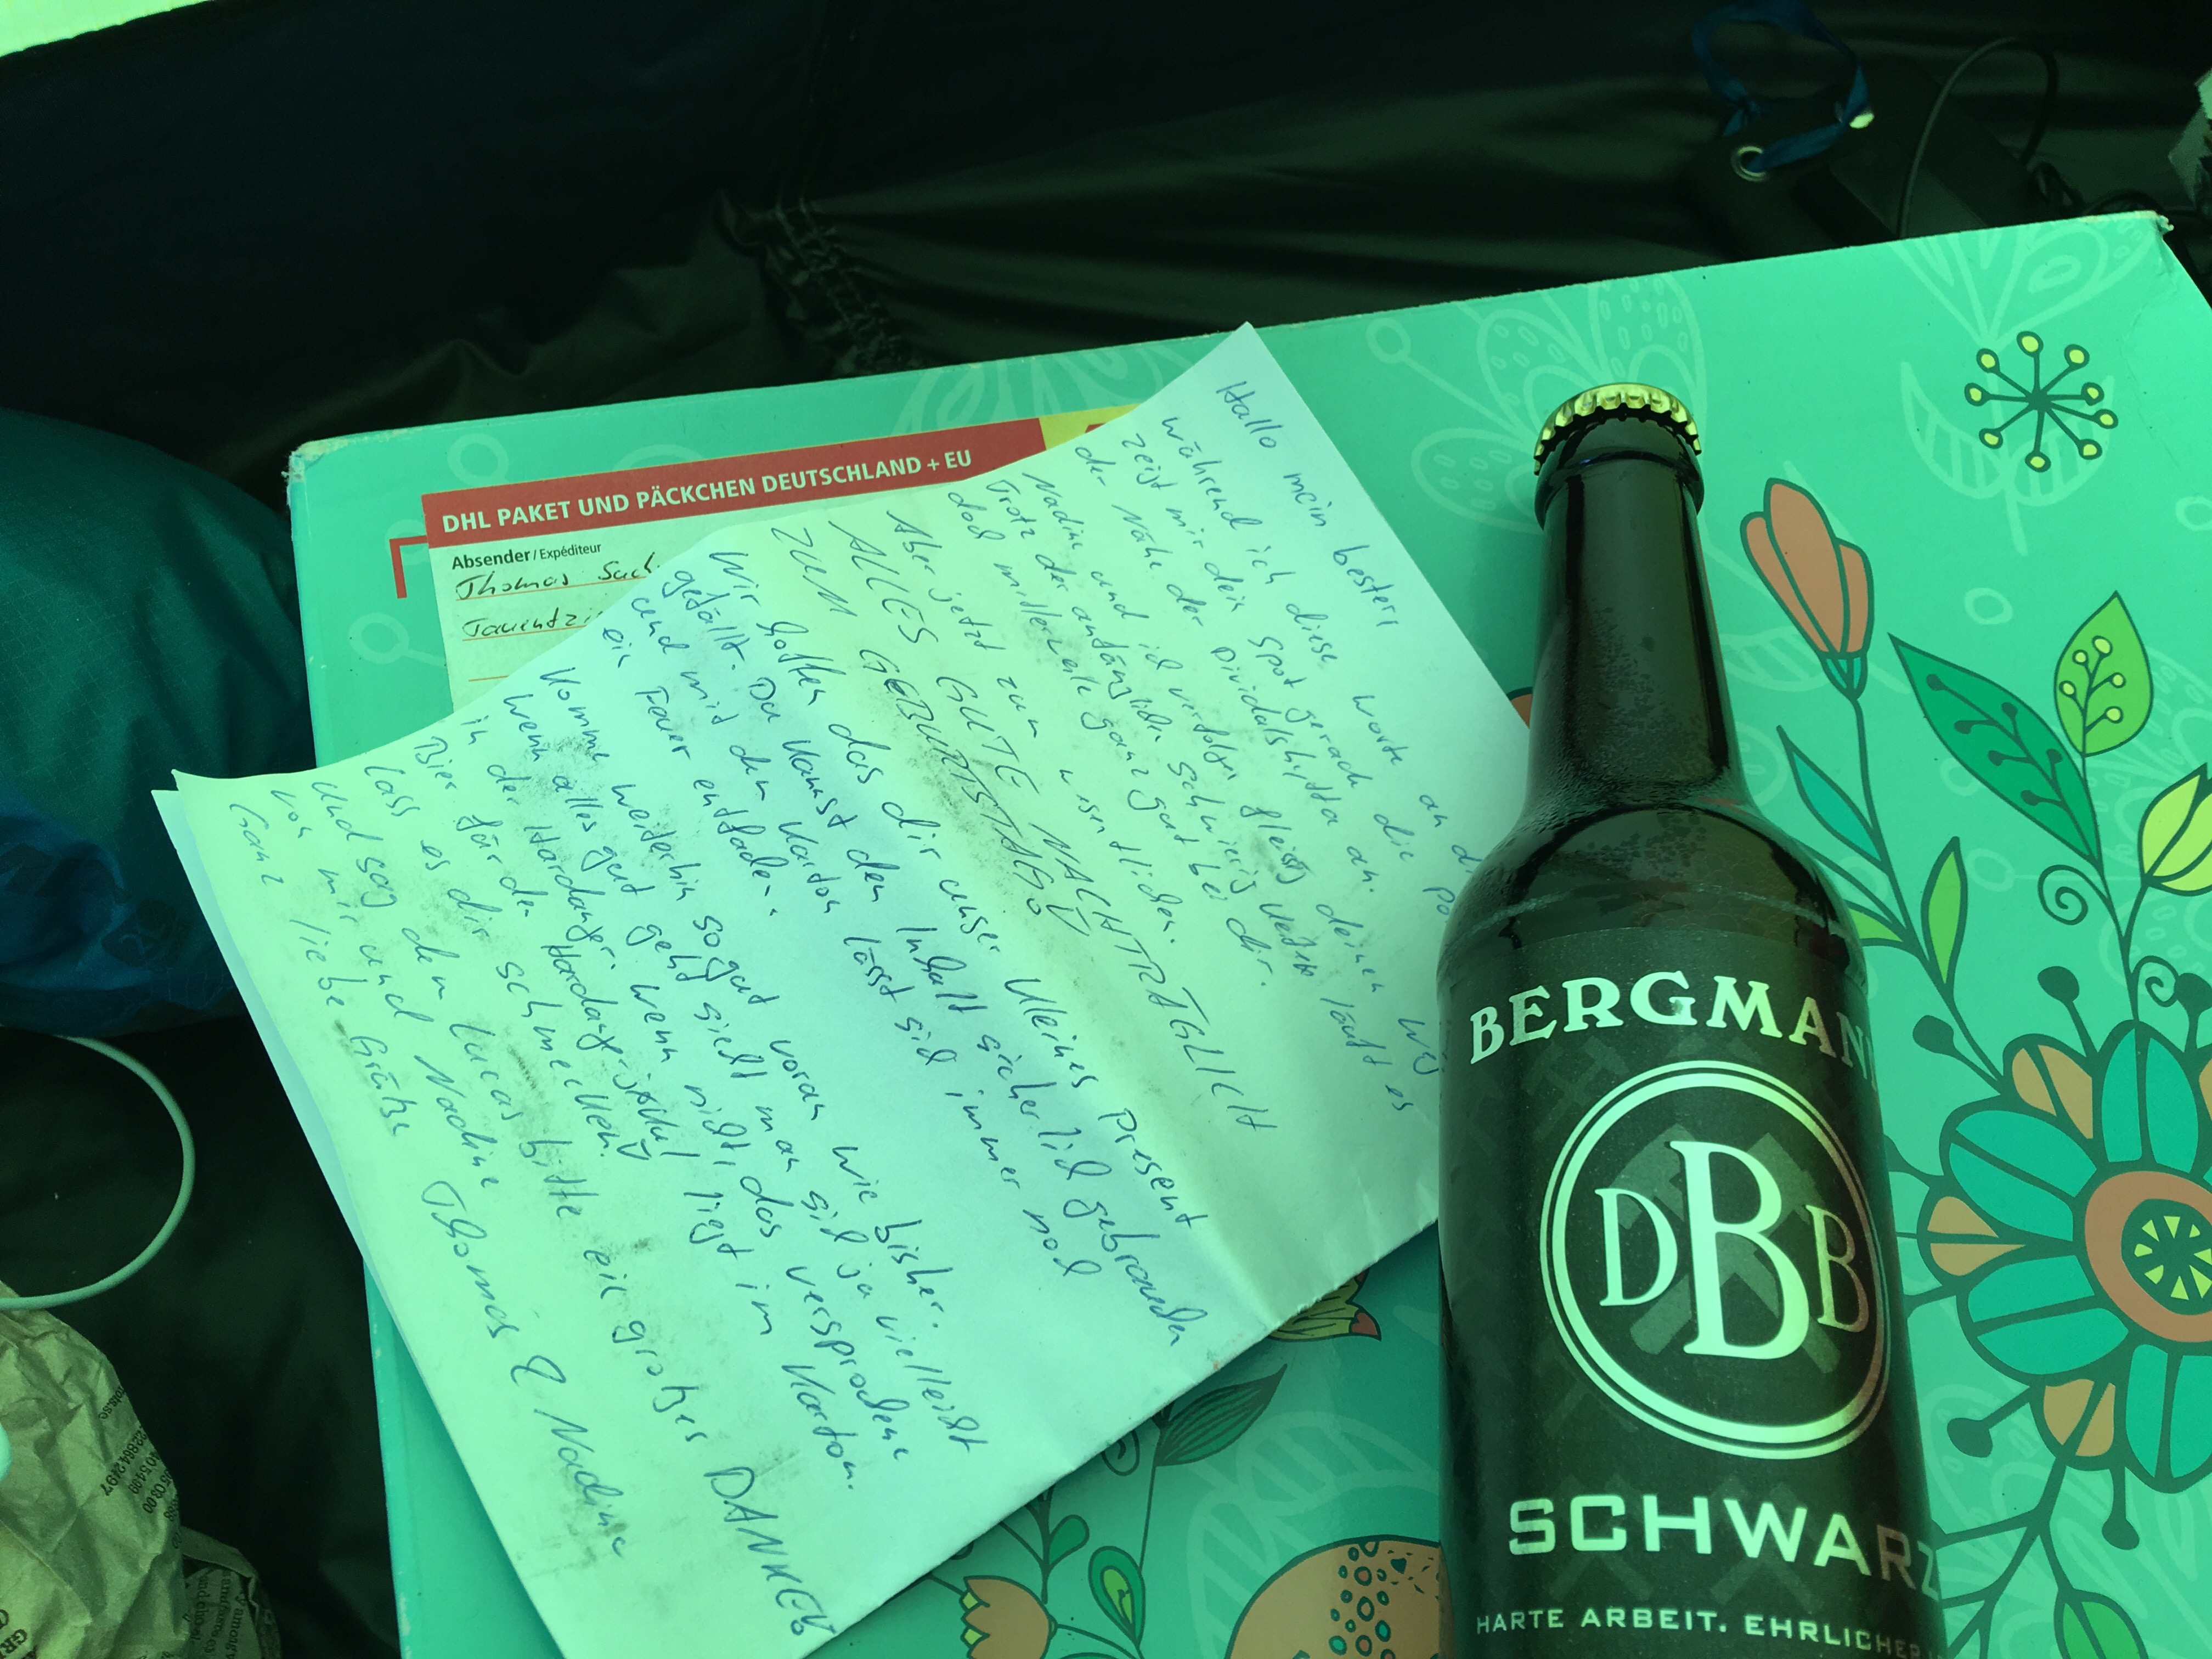 DHL PAKET UND PÄCKCHEN DEUTSCHLAND + EU
Absender / Expéditeur
Thomas
Hallo mein bester!
während ich diese Worte an
zeigt mir dein Spot gerade die
der Nähe der Dividalshytta an.
Nadine und ich verfolgen fleißig deinen Weg
Trotz der anfänglichen Schwierigkeiten läuft es
doch mittlerweile ganz gut bei dir.
Aber jetzt zum wesentlichen.
ALLES GUTE NACHTRÄGLICH
ZUM GEBURTSTAG!
Wir hoffen das dir unser kleines Present
gefällt. Du kannst den Inhalt sicherlich gebrauchen
und mit dem Karton lässt sich immer noch
ein Feuer entfachen.
Komme weiterhin so gut voran wie bisher.
Wenn alles gut geht sieht man sich ja vielleicht
in der Hardanger. Wenn nicht, das versprochene
Bier für den liegt im Karton.
Lass es dir schmecken!
Und sag dem Lucas bitte ein großes DANKE
von mir und Nadine
Ganz liebe Grüße Thomas & Nadine
BERGMANN
DBB
SCHWARZ
HARTE ARBEIT. EHRLICHER